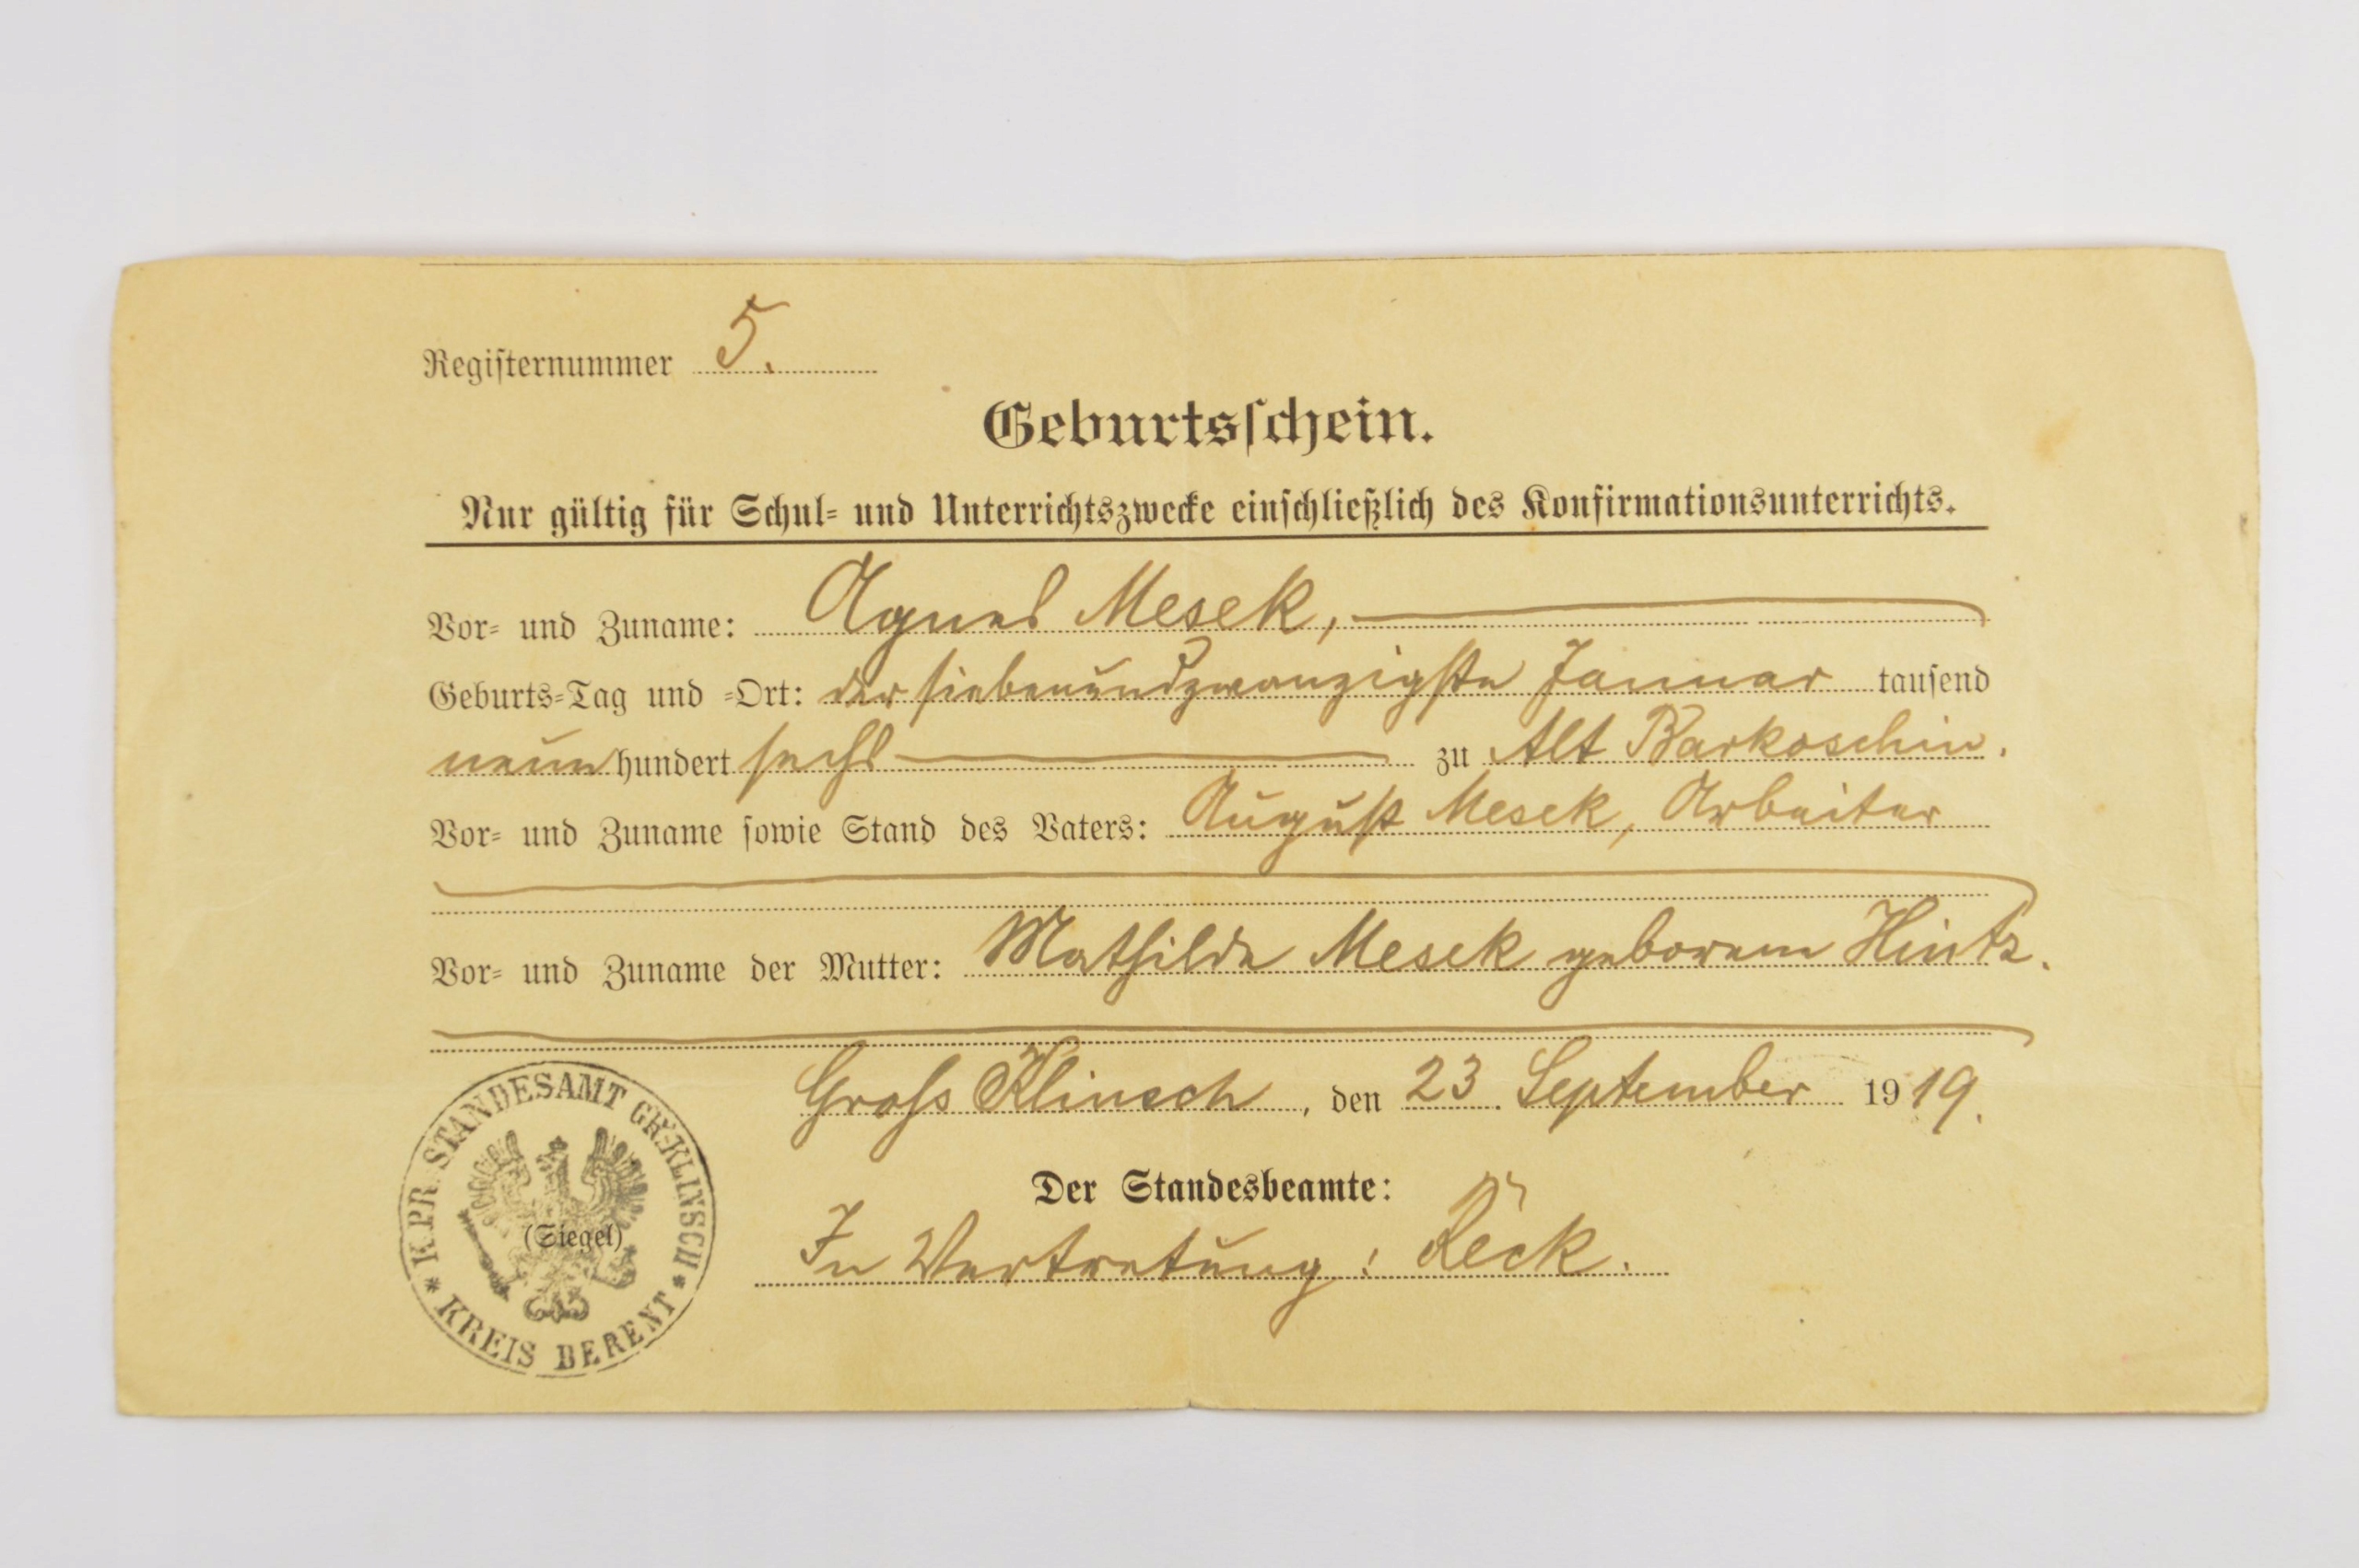 Registernummer 5.
Geburtsschein.
Nur gültig für Schul- und Unterrichtszwecke einschließlich des Konfirmationsunterrichts.
Vor- und Zuname: Agnes Mesek,
Geburts-Tag und -Ort: der siebenundzwanzigste Januar tausend
neunhundert sechs zu Alt Barkoschin.
Vor- und Zuname sowie Stand des Vaters: August Mesek, Arbeiter
Vor- und Zuname der Mutter: Mathilde Mesek geborene Hintz.
Gross Klinsch, den 23. September 1919.
Der Standesbeamte:
In Vertretung: Reck.
(Siegel)
* K. PR. STANDESAMT GR. KLINSCH *
KREIS BERENT